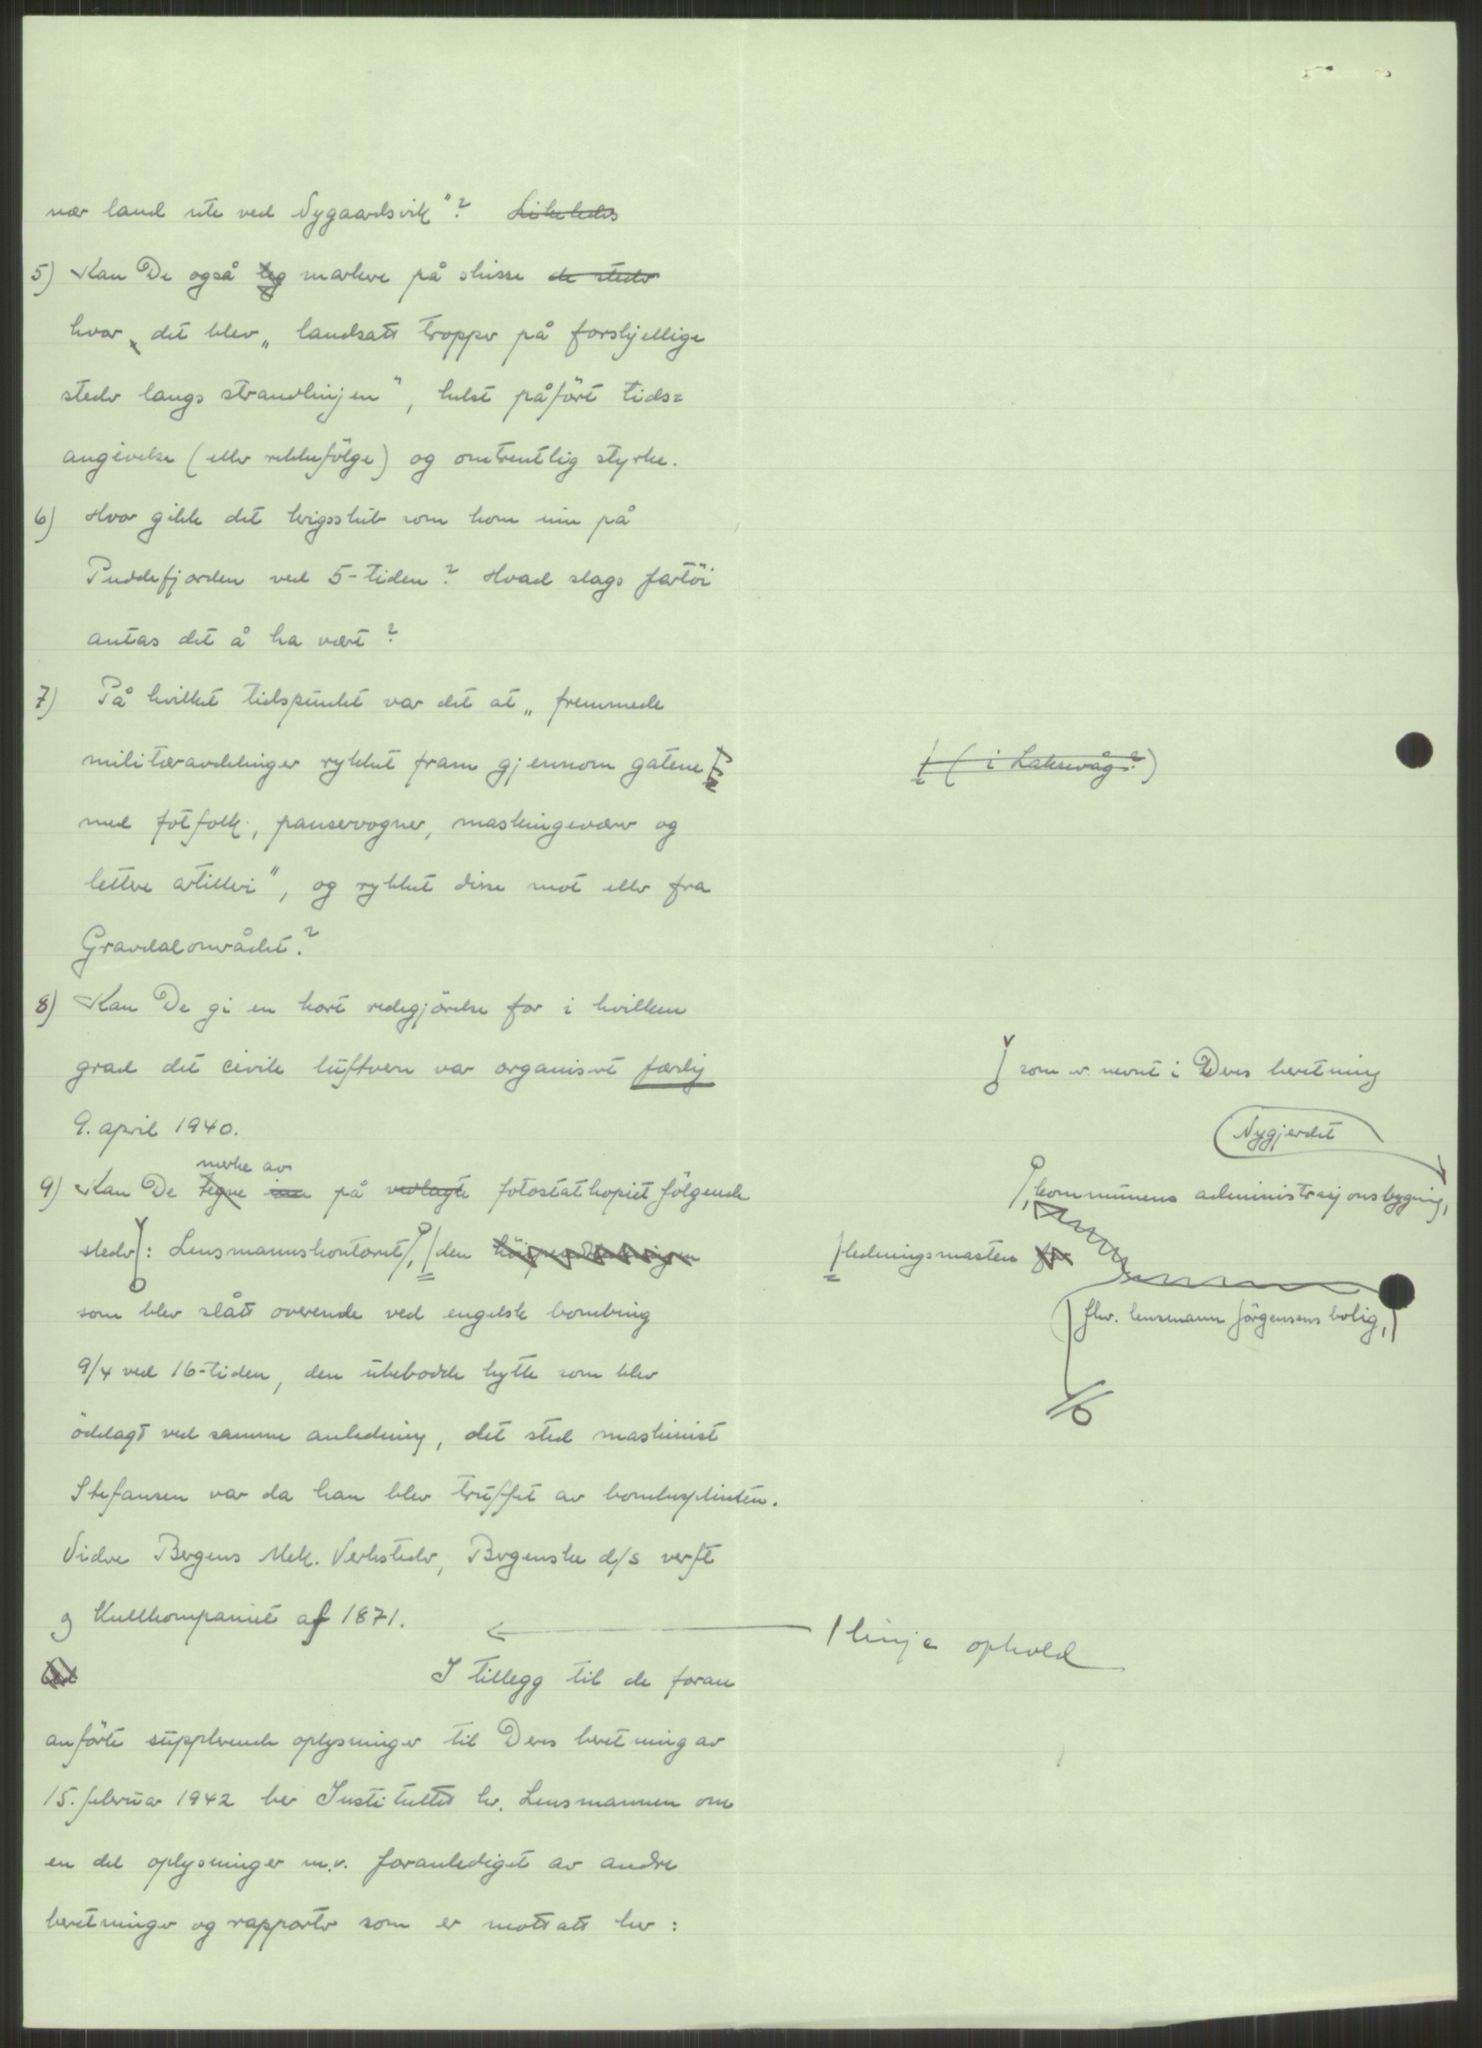 nær land ute ved Nygaardsvik"? Likeledes
5) Kan De også teg markere på skisse de steder
hvor det blev „landsatt tropper på forskjellige
steder langs strandlinjen", helst påført tids=
angivelse (eller rekkefølge) og omtrentlig styrke.
6) Hvor gikk det krigsskib som kom inn på
Puddefjorden ved 5-tiden? Hvad slags fartöi
antas det å ha vært?
7) På hvilket tidspunkt var det at „fremmede
militæravdelinger rykket fram gjennom gatene
(i Laksevåg?)
med fotfolk, panservogner, maskingeværer og
lettere artilleri", og rykket disse mot eller fra
Gravdalområdet?
8) Kan De gi en kort redegjörelse for i hvilken
grad det civile luftvern var organisert færdig
9. april 1940.
som er nevnt i Deres beretning
Nygjerdet
merke av
9) Kan De tegne inn på vedlagte fotostatkopiet fölgende
kommunens administrasjonsbygning,
steder: Lensmannskontoret, den
ledningsmasten for
som blev slått overende ved engelsk bombing
fhv. lensmann Jörgensens bolig,
9/4 ved 16-tiden, den ubebodde hytte som blev
ödelagt ved samme anledning, det sted maskinist
Stefansen var da han blev truffet av bombesplinten.
Videre Bergens Mek. Verksteder, Bergenske d/s verft
og Kullkompaniet af 1871.
1 linje ophold
I tillegg til de foran
anförte supplerende oplysninger til Deres beretning av
15. februar 1942 ber Instituttet hr. Lensmannen om
en del oplysninger m.v. foranlediget av andre
beretninger og rapporter som er mottatt her: